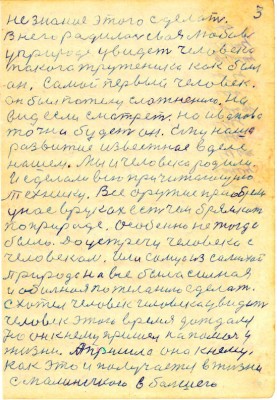 3
незнание этого сделать.
В него родилась своя любовь
у природе увидеть человека
такого труженика как был
он. Самой первый человек.
он был потелу сложнению. На
вид если смотреть но иваново
точно будет он. Ему наше
развитие известное в деле
нашем. Мы человека родили.
И сделали всю
технику. Все другие приобрели
у нас в руках есть чем бряснать
по природе. Особенно не тогда
было. До встречи человека с
человеком. Или самую из самой
природе на все была сильная
и обильная пожеланию сделать.
Схотел человек человека увидеть
человек этого время дождался
но он к нему пришел на помочь у
жизни. А пришло оно к нему.
как это и получается в жизни
с маленького в большего